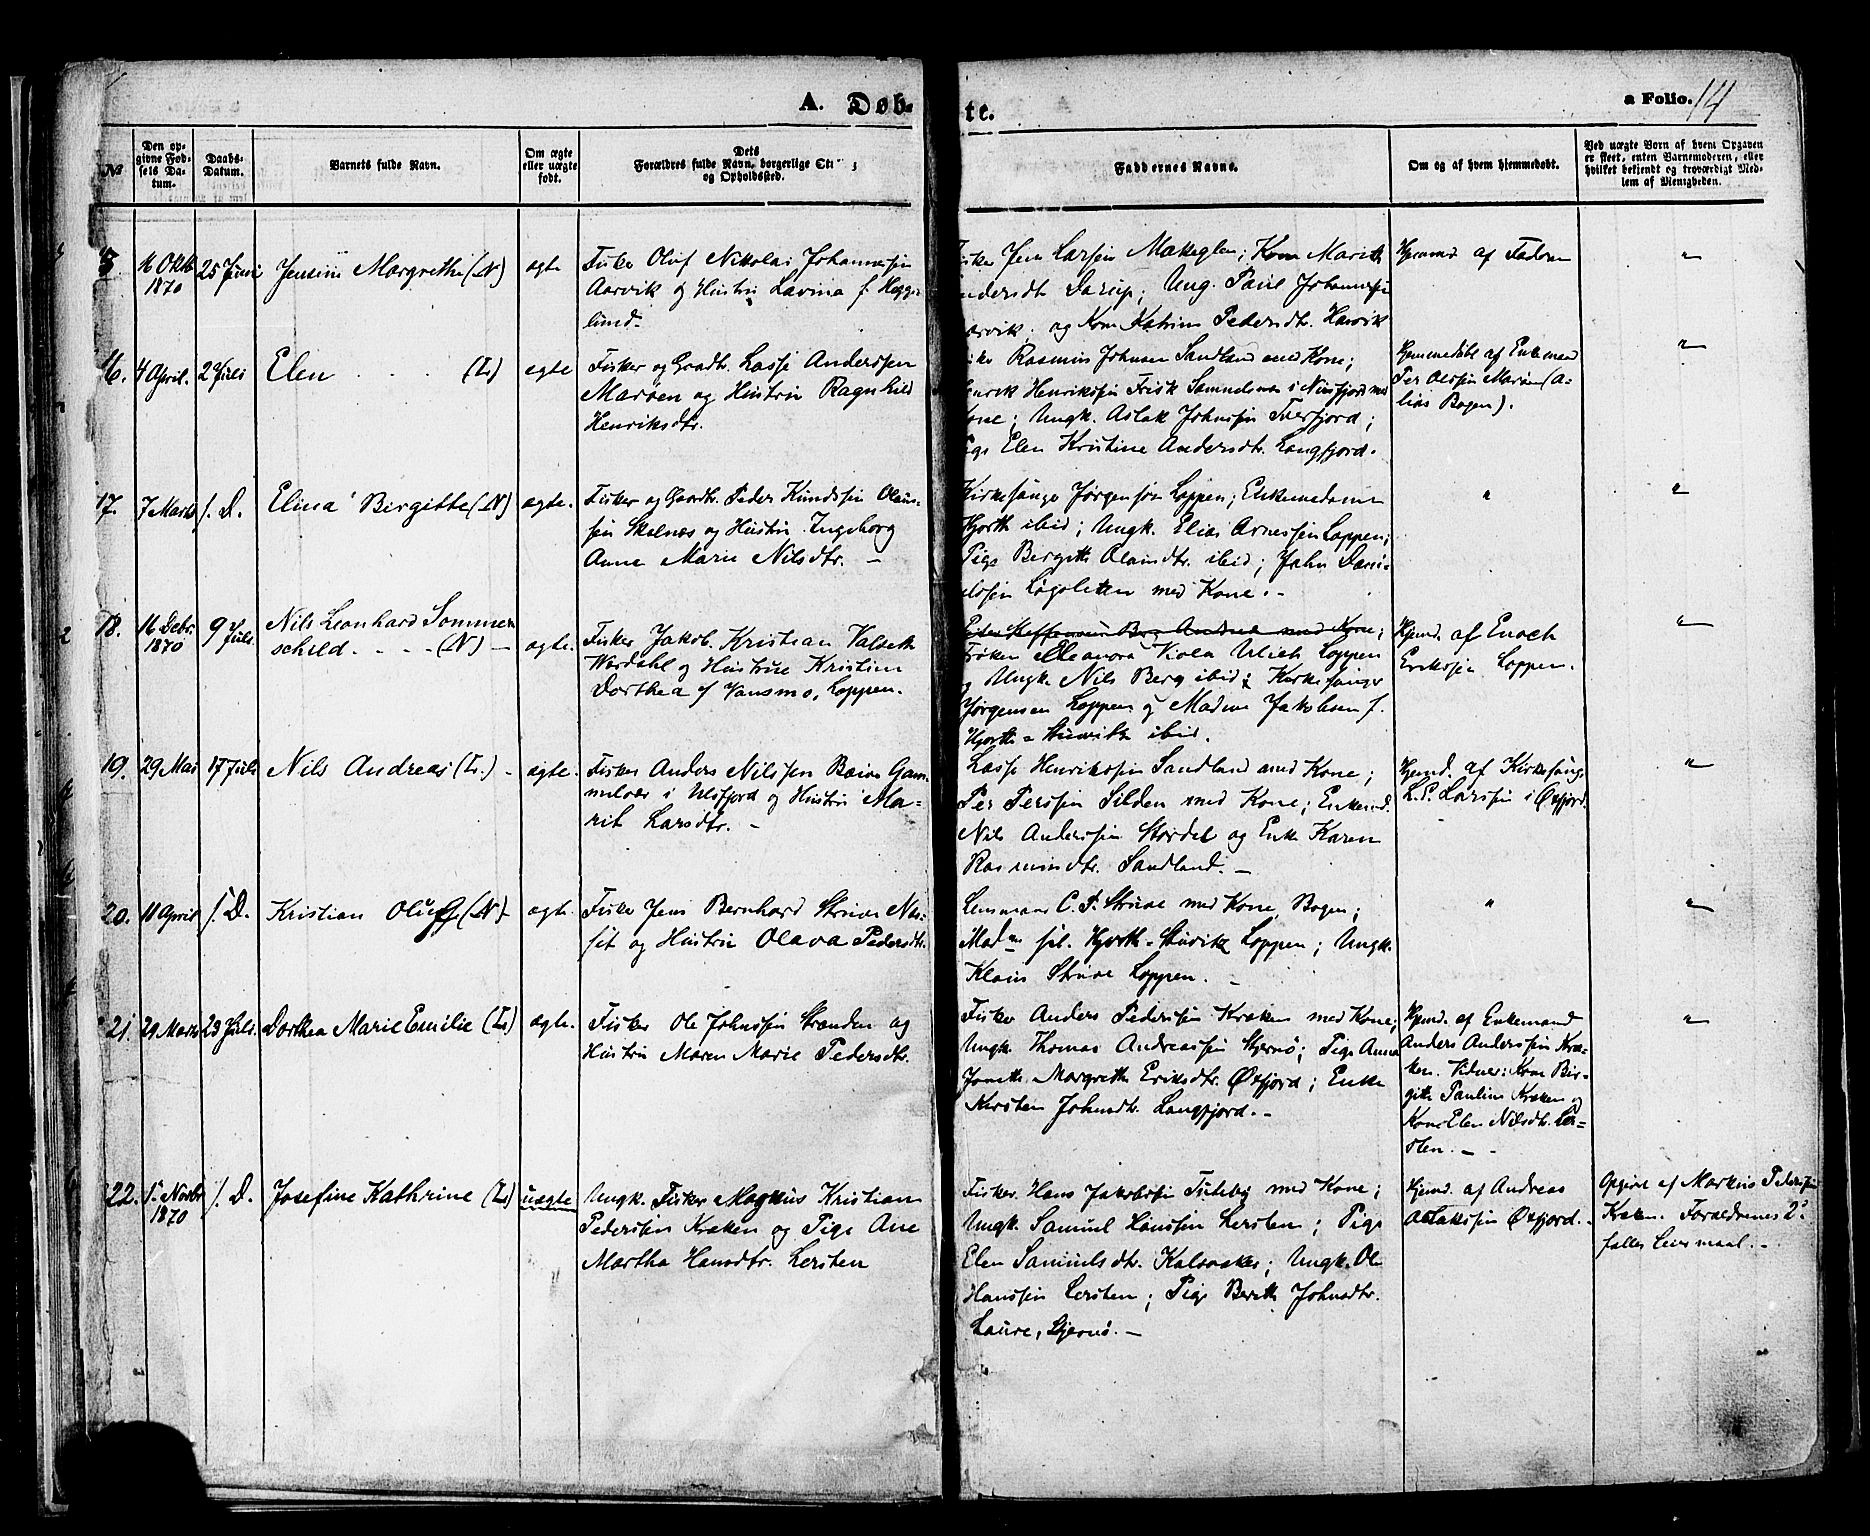 A. Døb-
te.
a Folio. 14
№
Den op-
givne Fød-
sels Da-
tum.
Daabs-
Datum.
Barnets fulde Navn.
Om ægte
eller uægte
født.
Dets
Forældres fulde Navn, borgerlige Sti
og Opholdssted.
Faddernes Navne.
Om og af hvem hjemmedøbt.
Ved uægte Børn af hvem Opgaven
er skeet, enten Barnemoderen, eller
hvilket bekjendt og troværdigt Med-
lem af Menigheden.
5
16 Oktb
1870
25 Juni
Jensine Margrethe (N)
ægte
Fisker Oluf Nikolai Johannesen
Aarvik og Hustru Lavina f. Hegge-
lund.
Fisker Jens Larsen Makeglen; Kone Marith
Andersdt. Darup; Ung. Paul Johannesen
Aarvik og Kone Katrine Pedersdtr. Hasvik
Hjemmed af Fadren
"
16.
4 April.
2 Juli
Elen . . . (L)
ægte
Fisker og Gaardbr. Lasse Anderssen
Marøen og Hustru Ragnhild
Henriksdtr.
Fisker Rasmus Johnsen Sandland med Kone;
Henrik Henrikssen Frisk Samuelsnæs i Nusfjord med
Kone; Ungk. Aslak Johnssen Tverfjord;
Pige Elen Kristine Andersdtr. Langfjord.
Hjemmedøbt af Enkeman
Per Olssen Marøen (A-
lias Bogen).
"
17.
7 Marts
s. D.
Elina Birgitte (N)
ægte.
Fisker og Gaardbr. Peder Knudssen Olaus-
sen Skalnæs og Hustru Ingeborg
Anne Marie Nilsdtr. —
Kirkesanger Jørgensen Loppen; Enkemadame
Hjorth ibid; Ungk. Elias Arnessen Loppen;
Pige Bergitte Olausdtr. ibid; John Dani-
elssen Løgsletten med Kone. -
"
"
18.
16 Debr.
1870
9 Juli
Nils Leonhard Sommer
schild. - - - - (N) —
ægte.
Fisker Jakob Kristian Valseth
Wærdahl og Hustrue Kristine
Dorthea f. Jansmo, Loppen.
Peter Steffensen Berg Andnæs med Kone;
Frøken Eleanora Viola Ulich Loppen
og Ungk. Nils Berg ibid; Kirkesanger
Jørgensen Loppen og Madme Jakobsen f.
Hjorth-Stuwitz ibid.
Hjemd. af Enoch
Erikssen Loppen.
"
19.
29 Mai
17 Juli
Nils Andreas (L.) -
ægte.
Fisker Anders Nilssen Baive Gam-
melvær i Ulsfjord og Hustru Ma-
rit Larsdtr. —
Lasse Henrikssen Sandland med Kone;
Per Perssen Silden med Kone; Enkemd.
Nils Anderssen Stordal og Enke Karen
Rasmusdtr. Sandland. —
Hjemd. af Kirkesang.
L. P. Larssen i Øxfjord.
"
20.
11 April
s. D.
Kristian Oluf (N)
ægte.
Fisker Jens Bernhard Struve Næs-
set og Hustru Olava Pedersdtr.
Lensmann C. P. Struve med Kone, Bogen;
Madme sel. Hjorth-Stuwitz Loppen; Ungk.
Klaus Struve Loppen. —
"
"
21.
29 Marts
23 Juli.
Dorthea Marie Emilie (L)
ægte.
Fisker Ole Johnssen Stranden og
Hustru Maren Marie Pedersdtr.
Fisker Anders Pederssen Kraken med Kone;
Ungk. Thomas Andreassen Stjernø; Pige Anna
Jonette Margrethe Eriksdtr. Øxfjord; Enke
Kersten Johnsdtr. Langfjord. -
Hjemd. af Enkemand
Anders Anderssen Kra-
ken. Vidner: Kone Bir-
gitte Pauline Kraken og
Kone Elen Nilsdtr. Ler-
sten. —
"
22.
1. Novbr
1870
s. D.
Josefine Kathrine (L)
uægte
Ungk. Fisker Magkus Kristian
Pederssen Kraken og Pige Ane
Martha Hansdtr. Lersten
Fisker Hans Jakobssen Tuteby med Kone;
Ungk. Samuel Hanssen Lersten; Pige
Elen Samuelsdtr. Kalvaaker; Ungk. Ole
Hanssen Lersten; Pige Berith Johnsdtr.
Laure, Stjernø. —
Hjemd. af Andreas
Aslakssen Øxfjord.
Opgivet af Markus Pederssen
Kraken. Forældrenes 2det
fælles Leiermaal. —